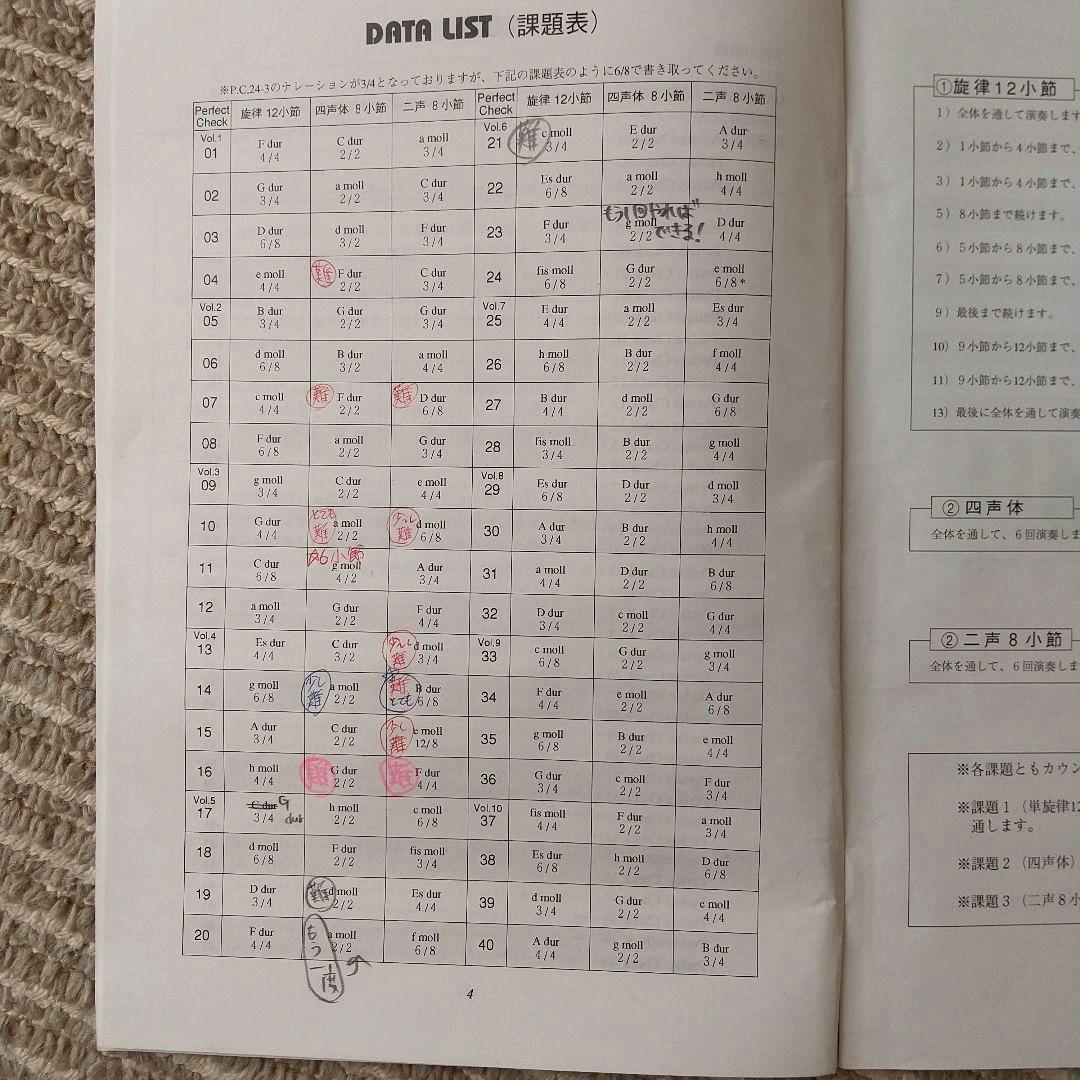 DATA LIST（課題表）
※P.C.24-3のナレーションが3/4となっておりますが、下記の課題表のように6/8で書き取ってください。
Perfect Check 旋律 12小節 四声体 8小節 二声 8小節 Perfect Check 旋律 12小節 四声体 8小節 二声 8小節
Vol.1 01 F dur 4/4 C dur 2/2 a moll 3/4 Vol.6 21 難 c moll 3/4 E dur 2/2 A dur 3/4
02 G dur 3/4 a moll 2/2 C dur 3/4 22 Es dur 6/8 a moll 2/2 h moll 4/4
03 D dur 6/8 d moll 3/2 F dur 3/4 23 F dur 3/4 もう1回やれば g moll 2/2 できる! D dur 4/4
04 e moll 4/4 難 F dur 2/2 C dur 3/4 24 fis moll 6/8 G dur 2/2 e moll 6/8*
Vol.2 05 B dur 3/4 G dur 2/2 G dur 3/4 Vol.7 25 E dur 4/4 a moll 2/2 Es dur 3/4
06 d moll 6/8 B dur 3/2 a moll 4/4 26 h moll 6/8 B dur 2/2 f moll 4/4
07 c moll 4/4 難 F dur 2/2 難 D dur 6/8 27 B dur 4/4 d moll 2/2 G dur 6/8
08 F dur 6/8 a moll 2/2 G dur 3/4 28 fis moll 3/4 B dur 2/2 g moll 4/4
Vol.3 09 g moll 3/4 C dur 2/2 e moll 4/4 Vol.8 29 Es dur 6/8 D dur 2/2 d moll 3/4
10 G dur 4/4 とても難 a moll 2/2 少し難 d moll 6/8 30 A dur 3/4 B dur 2/2 h moll 4/4
11 C dur 6/8 ☆6小節 g moll 4/2 A dur 3/4 31 a moll 4/4 D dur 2/2 B dur 6/8
12 a moll 3/4 G dur 2/2 F dur 4/4 32 D dur 3/4 c moll 2/2 G dur 4/4
Vol.4 13 Es dur 4/4 C dur 3/2 少し難 d moll 3/4 Vol.9 33 c moll 6/8 G dur 2/2 g moll 3/4
14 g moll 6/8 少し難 a moll 2/2 難 とても B dur 6/8 34 F dur 4/4 e moll 2/2 A dur 6/8
15 A dur 3/4 C dur 2/2 少し難 e moll 12/8 35 g moll 6/8 B dur 2/2 e moll 4/4
16 h moll 4/4 難 G dur 2/2 難 F dur 4/4 36 G dur 3/4 c moll 2/2 F dur 3/4
Vol.5 17 C dur G dur 3/4 h moll 2/2 c moll 6/8 Vol.10 37 fis moll 4/4 F dur 2/2 a moll 3/4
18 d moll 6/8 F dur 2/2 fis moll 3/4 38 Es dur 6/8 h moll 2/2 D dur 6/8
19 D dur 3/4 難 d moll 2/2 Es dur 4/4 39 d moll 3/4 G dur 2/2 c moll 4/4
20 F dur 4/4 もう一度 a moll 2/2 f moll 6/8 40 A dur 4/4 g moll 2/2 B dur 3/4
4
①旋律12小節
1）全体を通して演奏します
2）1小節から4小節まで、
3）1小節から4小節まで、
5）8小節まで続けます。
6）5小節から8小節まで、
7）5小節から8小節まで、
9）最後まで続けます。
10）9小節から12小節まで、
11）9小節から12小節まで、
13）最後に全体を通して演奏
②四声体
全体を通して、6回演奏しま
②二声8小節
全体を通して、6回演奏しま
※各課題ともカウン
※課題1（単旋律12
通します。
※課題2（四声体）
※課題3（二声8小